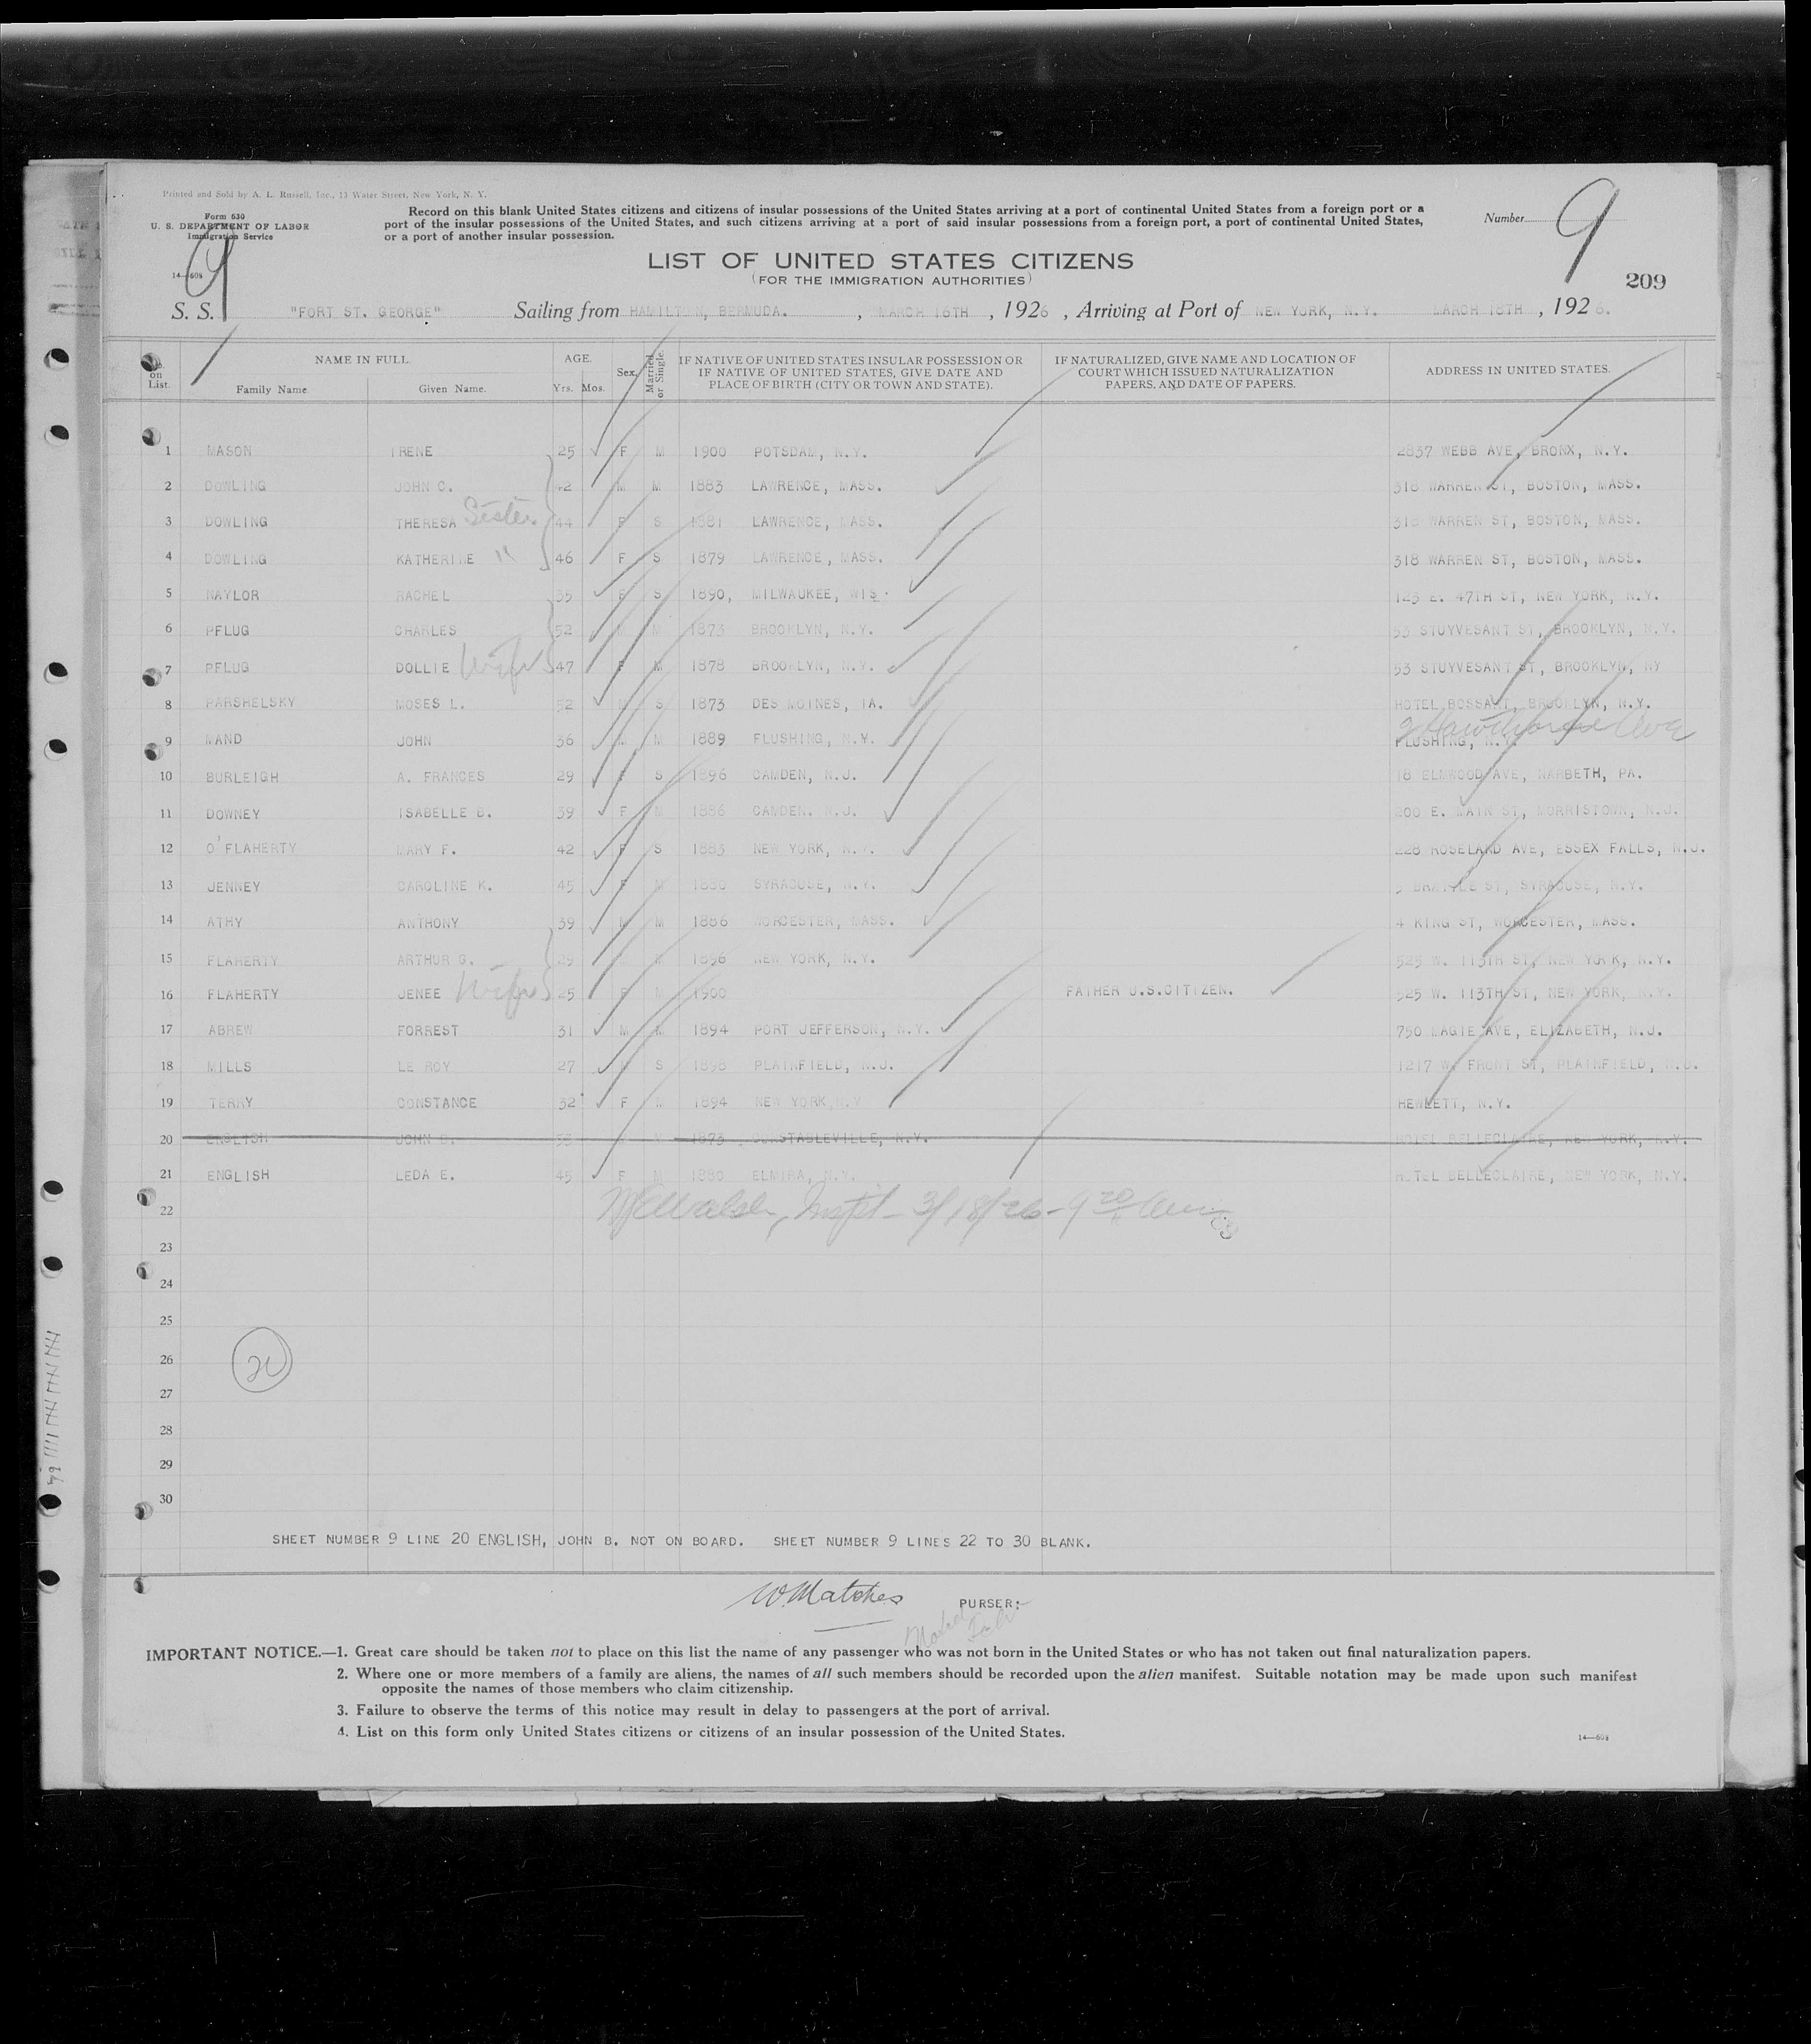 Printed and Sold by A. L. Russell, Inc., 13 Water Street, New York, N. Y.
Form 630
U. S. DEPARTMENT OF LABOR
Immigration Service
14—608
9
Record on this blank United States citizens and citizens of insular possessions of the United States arriving at a port of continental United States from a foreign port or a
port of the insular possessions of the United States, and such citizens arriving at a port of said insular possessions from a foreign port, a port of continental United States,
or a port of another insular possession.
Number 9
LIST OF UNITED STATES CITIZENS
(FOR THE IMMIGRATION AUTHORITIES)
209
S. S. "FORT ST. GEORGE" Sailing from HAMILTON, BERMUDA. , MARCH 16TH , 1926 , Arriving at Port of NEW YORK, N.Y. MARCH 18TH , 1926.
No. on List. NAME IN FULL. Family Name Given Name. AGE. Yrs. Mos. Sex. Married or Single. IF NATIVE OF UNITED STATES INSULAR POSSESSION OR IF NATIVE OF UNITED STATES, GIVE DATE AND PLACE OF BIRTH (CITY OR TOWN AND STATE). IF NATURALIZED, GIVE NAME AND LOCATION OF COURT WHICH ISSUED NATURALIZATION PAPERS, AND DATE OF PAPERS. ADDRESS IN UNITED STATES.
1 MASON IRENE 25 F M 1900 POTSDAM, N.Y. 2837 WEBB AVE, BRONX, N.Y.
2 DOWLING JOHN C. 42 M M 1883 LAWRENCE, MASS. 318 WARREN ST, BOSTON, MASS.
3 DOWLING THERESA Sister 44 F S 1881 LAWRENCE, MASS. 318 WARREN ST, BOSTON, MASS.
4 DOWLING KATHERINE " 46 F S 1879 LAWRENCE, MASS. 318 WARREN ST, BOSTON, MASS.
5 NAYLOR RACHEL 35 F S 1890, MILWAUKEE, WIS. 123 E. 47TH ST, NEW YORK, N.Y.
6 PFLUG CHARLES 52 M M 1873 BROOKLYN, N.Y. 53 STUYVESANT ST, BROOKLYN, N.Y.
7 PFLUG DOLLIE Wife 47 F M 1878 BROOKLYN, N.Y. 53 STUYVESANT ST, BROOKLYN, NY
8 PARSHELSKY MOSES L. 52 M S 1873 DES MOINES, IA. HOTEL BOSSART, BROOKLYN, N.Y.
Hawthorne Ave
9 MAND JOHN 36 M M 1889 FLUSHING, N.Y. FLUSHING, N.Y.
10 BURLEIGH A. FRANCES 29 F S 1896 CAMDEN, N.J. 18 ELMWOOD AVE, NARBETH, PA.
11 DOWNEY ISABELLE B. 39 F M 1886 CAMDEN. N.J. 200 E. MAIN ST, MORRISTOWN, N.J.
12 O'FLAHERTY MARY F. 42 F S 1883 NEW YORK, N.Y. 228 ROSELAND AVE, ESSEX FALLS, N.J.
13 JENNEY CAROLINE K. 45 F M 1880 SYRACUSE, N.Y. BRATTLE ST, SYRACUSE, N.Y.
14 ATHY ANTHONY 39 M M 1886 WORCESTER, MASS. 4 KING ST, WORCESTER, MASS.
15 FLAHERTY ARTHUR G. 29 M 1896 NEW YORK, N.Y. 525 W. 113TH ST, NEW YORK, N.Y.
16 FLAHERTY JENEE Wife 25 F M 1900 FATHER U.S.CITIZEN. 525 W. 113TH ST, NEW YORK, N.Y.
17 ABREW FORREST 31 M M 1894 PORT JEFFERSON, N.Y. 750 MAGIE AVE, ELIZABETH, N.J.
18 MILLS LE ROY 27 M S 1898 PLAINFIELD, N.J. 1217 W. FRONT ST, PLAINFIELD, N.J.
19 TERRY CONSTANCE 32 F M 1894 NEW YORK,N.Y HEWLETT, N.Y.
20 ENGLISH JOHN B. 53 M 1873 CONSTABLEVILLE, N.Y. HOTEL BELLECLAIRE, NEW YORK, N.Y.
21 ENGLISH LEDA E. 45 F M 1880 ELMIRA, N.Y. HOTEL BELLECLAIRE, NEW YORK, N.Y.
22 Walsh, Inspt - 3/18/26 - 9 20 am
23
24
25
26 20
27
28
29
30
SHEET NUMBER 9 LINE 20 ENGLISH, JOHN B. NOT ON BOARD. SHEET NUMBER 9 LINES 22 TO 30 BLANK.
W Matches PURSER:
IMPORTANT NOTICE.—1. Great care should be taken not to place on this list the name of any passenger who was not born in the United States or who has not taken out final naturalization papers.
2. Where one or more members of a family are aliens, the names of all such members should be recorded upon the alien manifest. Suitable notation may be made upon such manifest
opposite the names of those members who claim citizenship.
3. Failure to observe the terms of this notice may result in delay to passengers at the port of arrival.
4. List on this form only United States citizens or citizens of an insular possession of the United States.
14—608